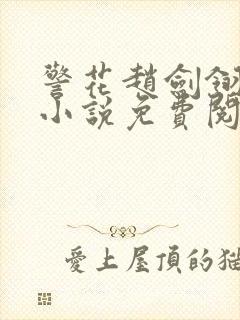 警花趙劍釵
小說免費閱
愛上屋頂的猫